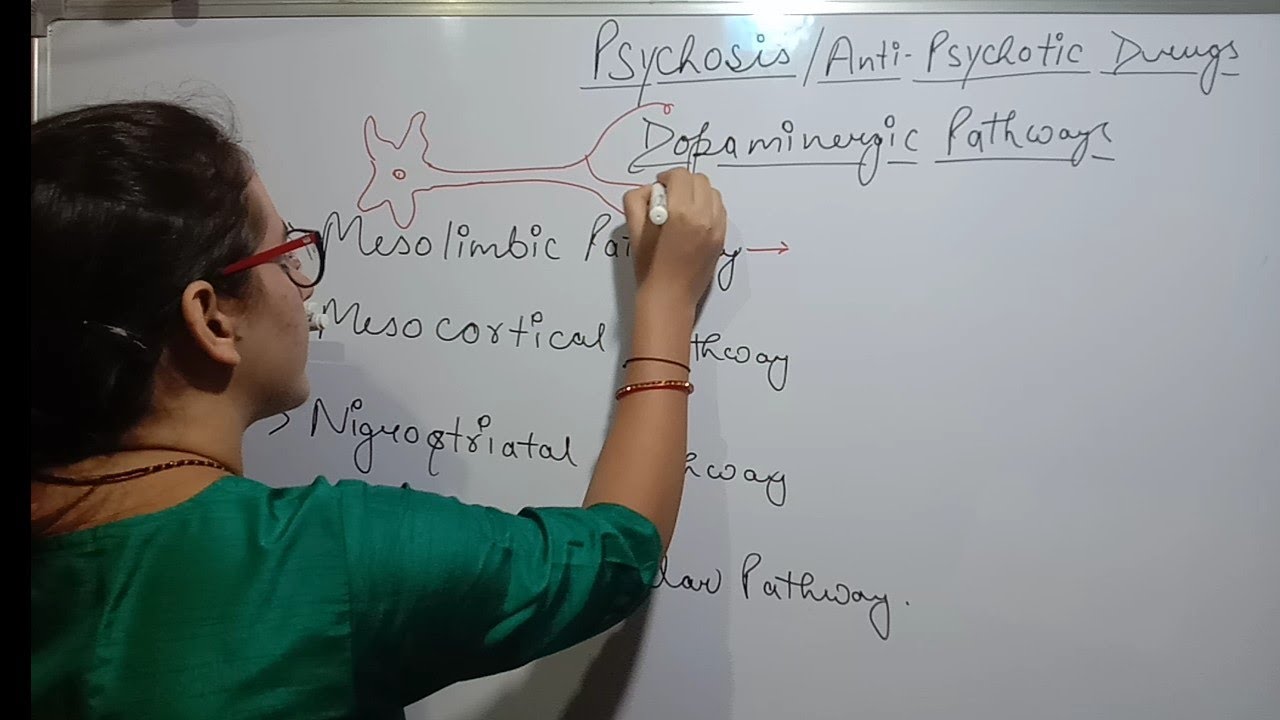 Psychosis/Anti-Psychotic Drugs
Dopaminergic Pathways
Mesolimbic →
Mesocortical
> Nigrostriatal
Pathway.